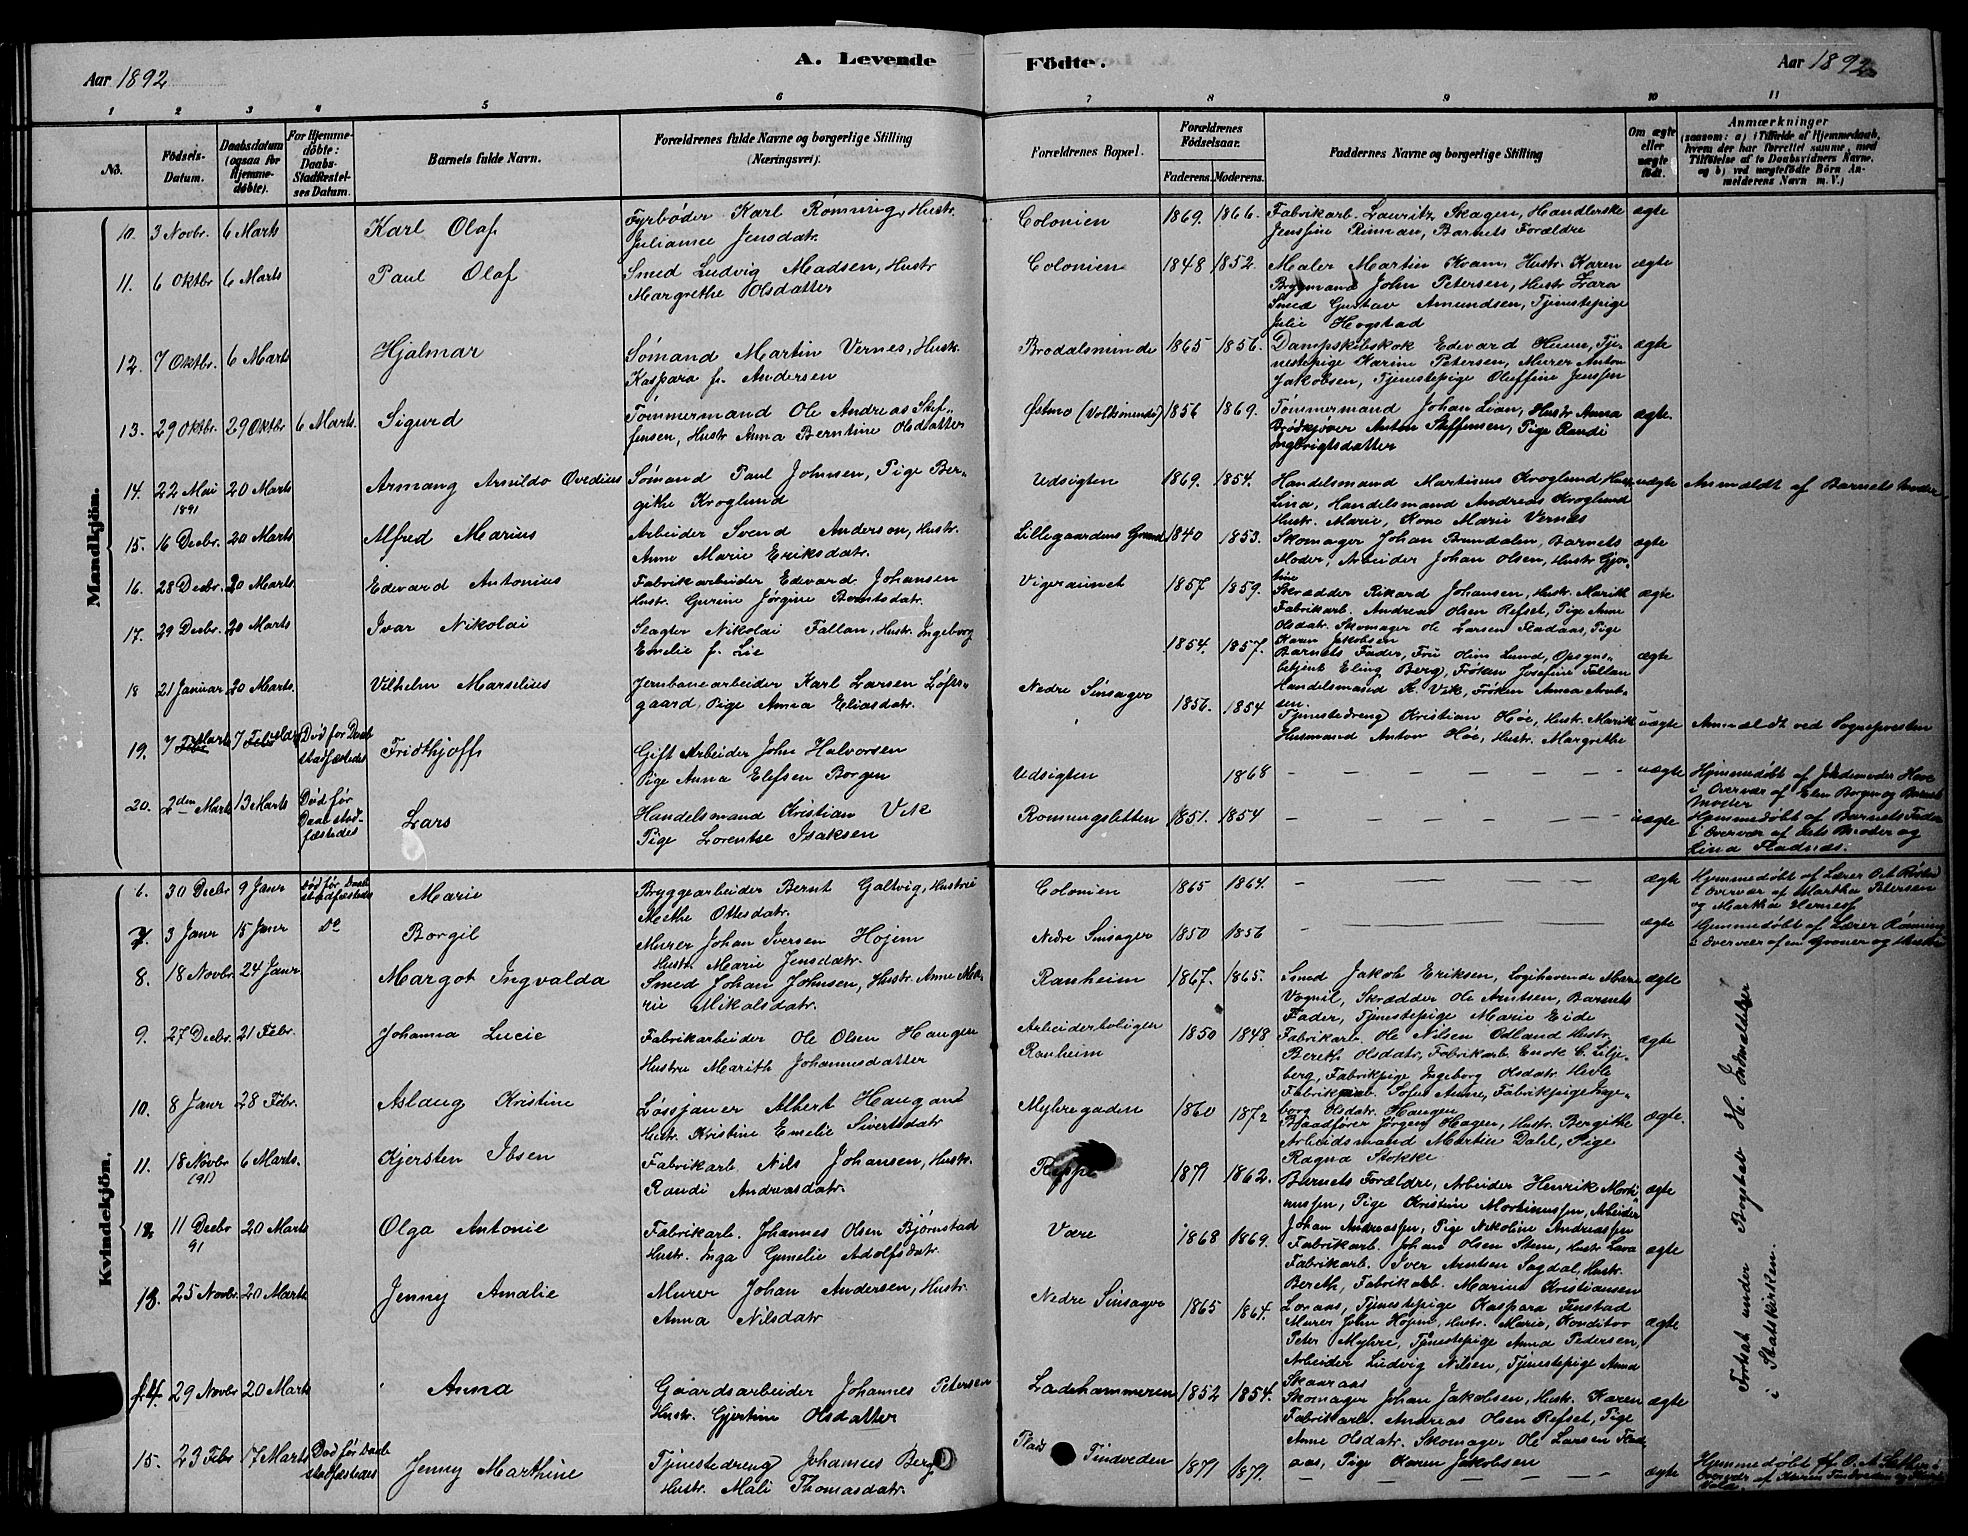 A. Levende Födte.
Aar 1892
Aar 1892
1 2 3 4 5 6 7 8 9 10 11
No.
Födsels-Datum.
Daabsdatum (ogsaa for Hjemme-døbte).
For Hjemme-døbte: Daabs-Stadfæstel-ses Datum.
Barnets fulde Navn.
Forældrenes fulde Navne og borgerlige Stilling (Næringsvei).
Forældrenes Bopæl.
Forældrenes Födselsaar.
Faderens. Moderens.
Faddernes Navne og borgerlige Stilling
Om ægte eller uægte födt.
Anmærkninger
(saasom: a) i Tilfælde af Hjemmedaab,
hvem der har forrettet samme, med
Tilföielse af to Daabsvidners Navne,
og b) ved uægtefödte Börn An-
melderens Navn m. V.)
Mandkjön.
10. 3 Novbr. 6 Marts Karl Olaf
Fyrbøder Karl Rønning, Hustr.
Julianne Jensdatr.
Colonien 1869. 1866.
Fabrikarb. Lauritz Skagen, Handlerske
Jensine Rinnan, Barnets Forældre
ægte
11. 6 Oktbr 6 Marts Paul Olaf
Smed Ludvig Madsen, Hustr
Margrethe Olsdatter
Colonien 1848 1852.
Maler Martin Kvam, Hustr. Karen
Brygmand John Petersen, Hustr Lara
Smed Gustav Amundsen, Tjenestepige
Julie Hogstad
ægte
12. 7 Oktbr. 6 Marts Hjalmar
Sømand Martin Vernes, Hustr.
Kaspara f. Andersen
Brodalsminde 1865 1856.
Dampskibskok Edevard Huem, Tje-
nestepige Karine Petersen, Murer Anton
Jakobsen, Tjenestepige Oluffine Jenssen
ægte
13. 29 Oktbr. 29 Oktbr 6 Marts. Sigurd
Tømmermand Ole Andreas Stef-
fensen, Hustr Anna Berntine Olsdatter
Østmo (Volksminde) 1856 1869.
Tømmermand Johan Lian, Hustr Anna
Brødkjører Anton Steffensen, Pige Randi
Ingbrigtsdatter
ægte.
14. 22 Mai 1891 20 Marts Armang Arnildo Ovedius
Sømand Paul Johnsen, Pige Ber-
githe Kroglund
Udsigten 1869. 1854.
Handelsmand Martinus Kroglund Hustr
Lina, Handelsmand Andreas Kroglund
Hustr. Marie, Kone Marie Vernes
uægte
Anmeldt af Barnets Moder
15. 16 Decbr. 20 Marts Alfred Marius
Arbeider Svend Anderson, Hustr.
Anne Marie Eriksdatr.
Lillegaardens Grund 1840 1853.
Skomager Johan Brendalen, Barnets
Moder, Arbeider Johan Olsen, Hustr Gjør-
tine
ægte
16. 28 Decbr. 20 Marts Edevard Antonius
Fabrikarbeider Edevard Johansen
Hustr. Gurine Jørgine Berntsdatr.
Vigeraunet 1857 1859.
Skrædder Rikard Johansen, Hustr. Marith
Fabrikarb. Andreas Olsen Refset, Pige Anne
Olsdatr. Skomager Ole Larsen Fladaas, Pige
Karen Jakobsen
ægte
17. 29 Decbr. 20 Marts Ivar Nikolai
Slagter Nikolai Fallan, Hustr. Ingeborg
Emelie f. Lie
1854. 1857.
Barnets Fader, Fru Oline Lund, Opsyns-
betjent Eling Berg, Frøken Josefine Fallan
ægte
18 21 Januar 20 Marts. Vilhelm Marselius
Jernbanearbeider Karl Larsen Løfts-
gaard, Pige Anna Eliasdatr.
Nedre Sinsager 1856. 1854
Handelsmand K. Vik, Frøken Anna Arnt-
sen.
Tjenestedreng Kristian Høe, Hustr. Marith
Husmand Anton Høe, Hustr. Margrethe
uægte
Anmeldt ved Sognepresten
19. 7 Marts 7 Marts Død før Daab stadfæstedes Fridthjoff
Gift Arbeider John Halvorsen
Pige Anna Elefsen Borgen
Udsigten 1868
uægte
Hjemmedøbt af Jordemoder Hove
i Overvær af Elen Borgen og Barnets
Moder
20. 2den Marts 13 Marts Død før Daab stad-fæstedes Lars
Handelsmand Kristian Vik
Pige Lorentse Isaksen
Romungsletten 1851. 1854
uægte
Hjemmedøbt af Barnets Fader
i Overvær af dets Moder og
Lina Fladnes.
Kvindekjön.
6. 30 Decbr 9 Janr Død før Daab stadfæstedes Marie
Bryggearbeider Bernt Galtvig, Hustru
Methe Ottesdatr.
Colonien 1865 1864.
ægte
Hjemmedøbt af Lærer O.t Røstad
i Overvær af Martha Petersen
og Martha Hernes
7. 3 Janr 15 Janr Do Borgil
Murer Johan Iversen Hojem
Hustr. Marie Jensdatr.
Nedre Sinsager 1850 1856
ægte
Hjemmedøbt af Lærer Rønning
i Overvær af en Groner og Hustru
8. 18 Novbr. 24 Janr Margot Ingvalda
Smed Johan Johnsen, Hustr. Anne Ma-
rie Mikalsdatr.
Ranheim 1867. 1865.
Smed Jakob Eriksen, Logihavende Mari
Vognil, Skrædder Ole Arntsen, Barnets
Fader, Tjenestepige Marie Eide
ægte
9. 27 Decbr. 21 Febr. Johanna Lucie
Fabrikarbeider Ole Olsen Haugen
Hustru Marith Johannesdatter
Arbeiderboligen
Ranheim 1850 1848
Fabrikarb. Ole Nilsen Odland Hustr.
Bereth Olsdatr, Fabrikarb. Enok C. Lilje-
berg, Fabrikpige Ingeborg Olsdatr Hevle
Fabrikpige Sofie Anne, Fabrikpige Inge-
borg Olsdatr. Haugen
ægte
10. 8 Janr 28 Febr. Aslaug Kristine
Løssjauer Albert Haugans
Hustr. Kristine Emelie Sivertsdatr
Myhregaden 1860 1872
Baadfører Jørgen Hagen, Hustr. Bergithe
Arbeidsmand Martin Dahl, Pige
Ragna Stokke
ægte.
11. 18 Novbr (91) 6 Marts. Kjersten Ibsen
Fabrikarb. Nils Johansen, Hustr.
Randi Andreasdatr.
Reppe 1871 1862.
Barnets Forældre, Arbeider Henrik Morti-
nussen, Pige Kristine Mortinussen, Arbeider
Johan Andreassen, Pige Nikoline Andreassen
ægte
12. 11 Decbr 91 20 Marts Olga Antonie
Fabrikarb. Johannes Olsen Bjørnstad
Hustr. Inga Gunelie Adolfsdatr.
Være 1868 1869.
Fabrikarb. Johan Olsen Stene, Hustr Lava
Fabrikarb. Iver Arntsen Sagdal, Hustr.
Bereth, Fabrikarb. Marius Kristiansen
Loraas, Tjenestepige Kaspara Fenstad
ægte
13. 25 Novbr. 20 Marts Jenny Amalie
Murer Johan Andersen, Hustr.
Anna Nilsdatr
Nedre Sinsager 1865 1864.
Murer John Hojem, Hustr. Marie, Konditor
Peter Myhre, Tjenestepige Anna Pedersen,
Arbeider Ludvig Nilsen, Tjenestepige Anna
Skaaraas
ægte
14. 29 Novbr 20 Marts Anna
Gaardsarbeider Johannes Petersen
Hustr. Gjertine Olsdatter
Ladehammeren 1852 1854.
Skomager Johan Jakobsen, Hustr. Karen
Fabrikarb. Andreas Olsen Refset, Pige
Anne Olsdatr. Skomager Ole Larsen Flad-
aas, Pige Karen Jakobsen
ægte
15. 23 Febr 17 Marts Død før Daab stadfæstedes Jenny Marthine
Tjenestedreng Johannes Berg
Hustr. Mali Thomasdatr.
Plads Tindveden 1871 1871.
ægte
Hjemmedøbt af O. A. Sæther i
Overvær af Karen Tindveden og
Vold.
Fortsat under Bogstav H. Indmeldelser
i Statskirken.